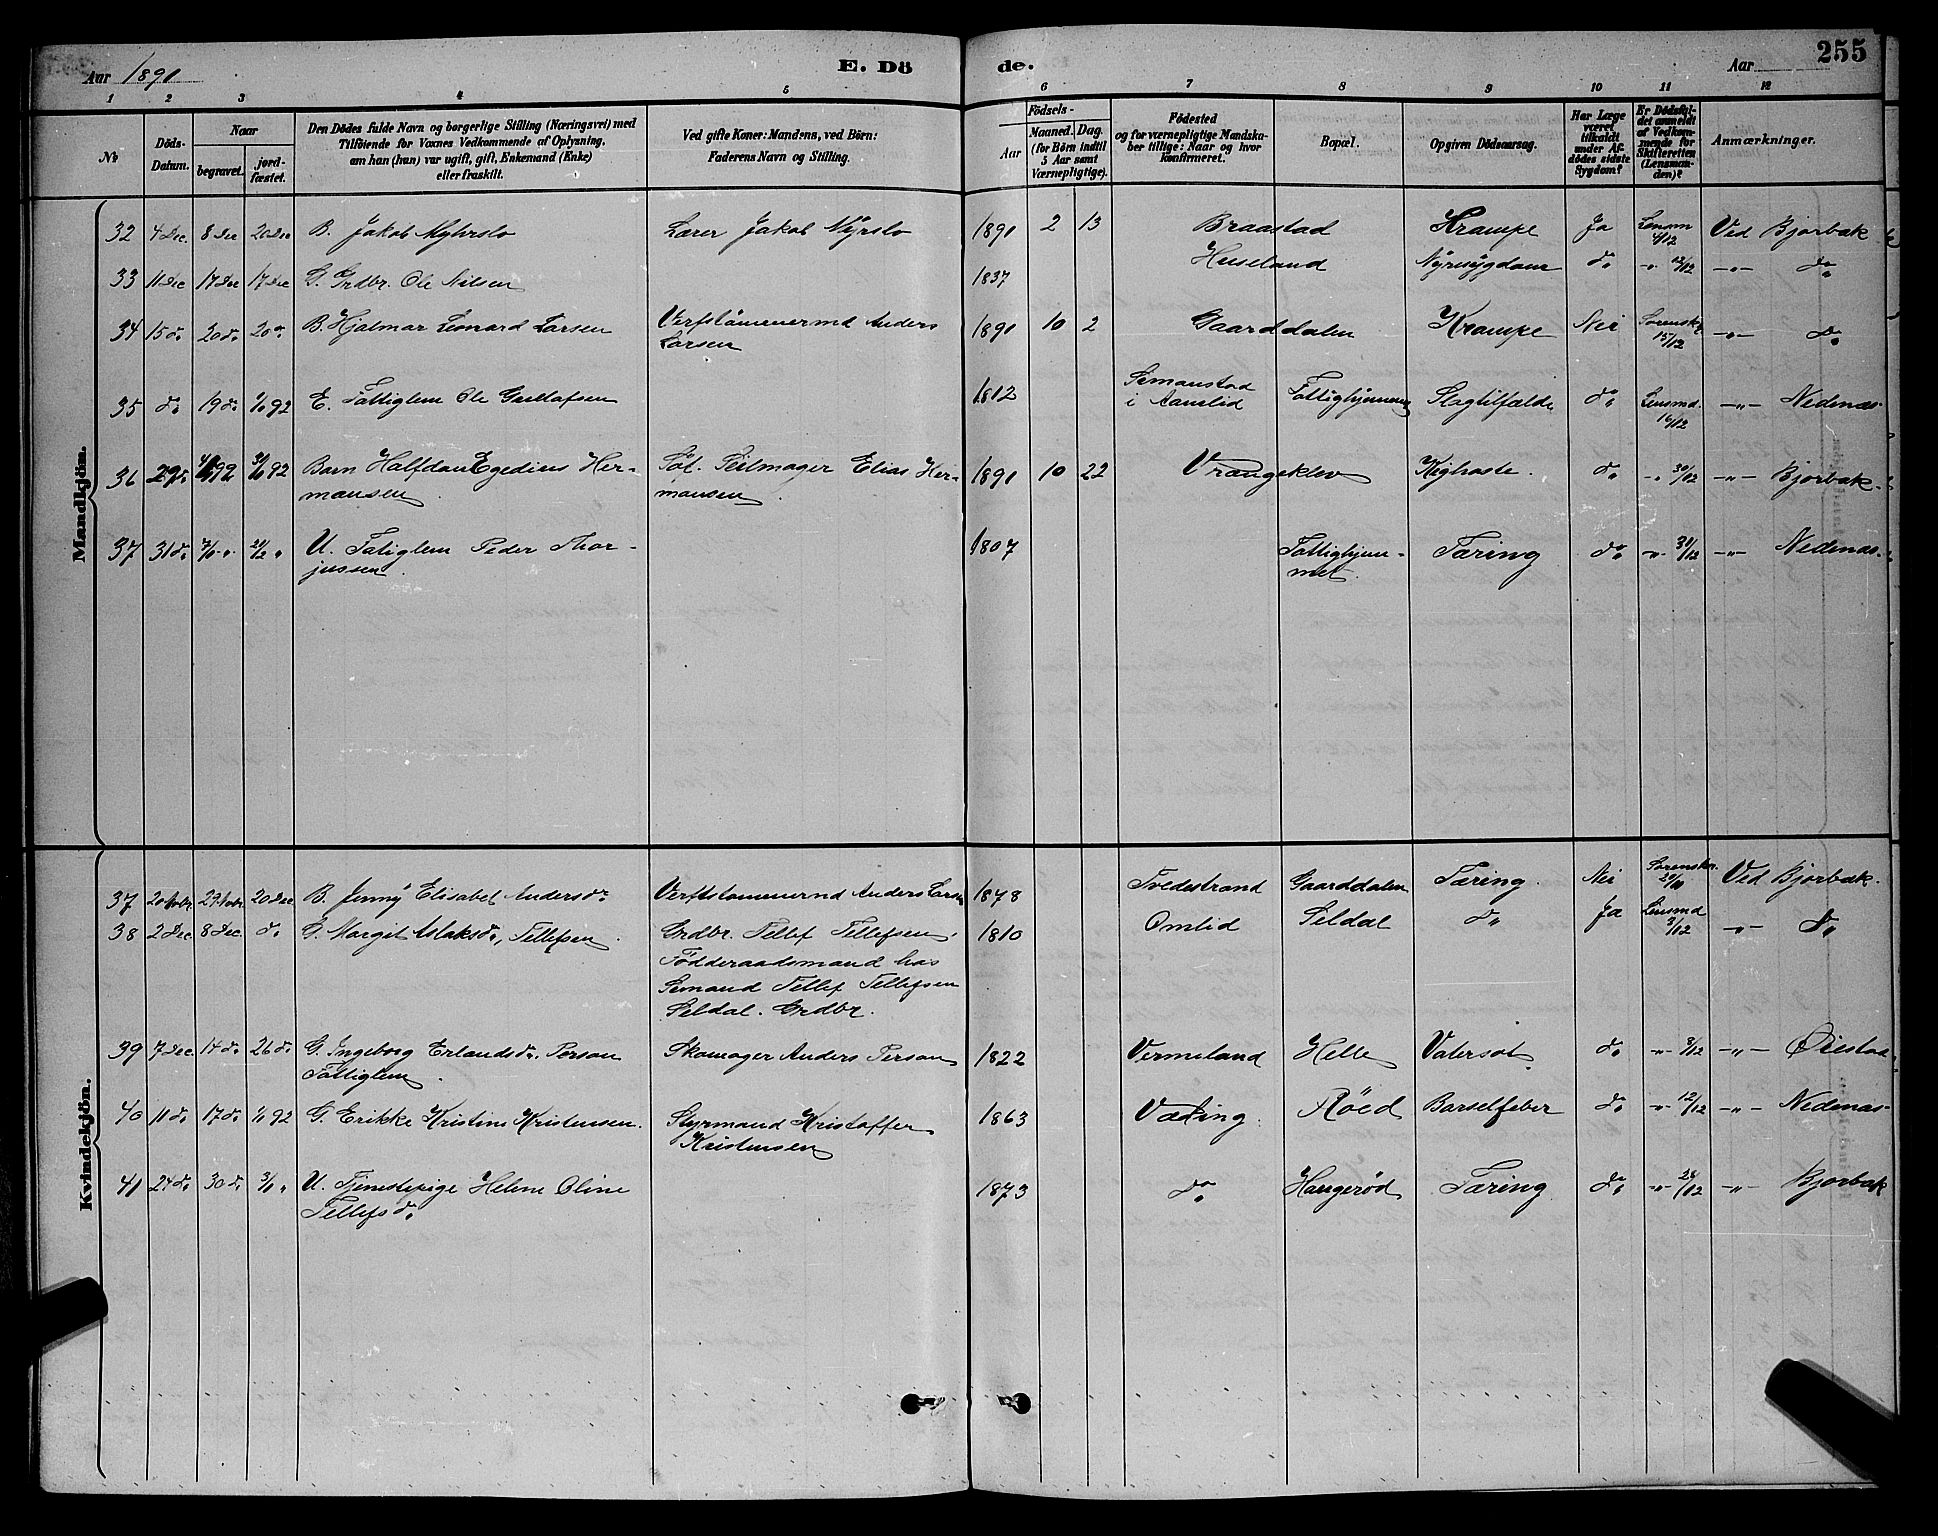 Aar 1891 E. Dö de. Aar 255
1 2 3 4 5 6 7 8 9 10 11 12
No
Döds-Datum.
Naar
begravet.
jord-fæstet.
Den Dödes fulde Navn og borgerlige Stilling (Næringsvei) med
Tilföiende for Voxnes Vedkommende af Oplysning,
om han (hun) var ugift, gift, Enkemand (Enke)
eller fraskilt.
Ved gifte Koner: Mandens, ved Börn:
Faderens Navn og Stilling.
Födsels-
Aar
Maaned. Dag.
(for Börn indtil
5 Aar samt
Værnepligtige).
Födested
og for værnepligtige Mandska-
ber tillige: Naar og hvor
konfirmeret.
Bopæl.
Opgiven Dödsaarsag.
Har Læge
været
tilkaldt
under Af-
dödes sidste
Sygdom?
Er Dödsfal-
det anmeldt
af Vedkom-
mende for
Skifteretten
(Lensman-
den)?
Anmærkninger.
Mandkjön.
32 4 Dec. 8 Dec 20 Dec B. Jakob Myhrslo Lærer Jakob Myrslo 1891 2 13 Braastad Krampe Ja Lensm 4/12 Ved Bjorbæk
33 11 Dec 17 Dec 17 Dec G. Grdbr. Ole Nilsen 1837 Huseland Nyresygdom do " 12/12 " do
34 15 do 20 do 20 do B. Hjalmar Leonard Larsen Verftstömmermd Anders
Larsen 1891 10 2 Gaarddalen Krampe Nei Sorenskr 15/12 " do
35 do 19 do 92 E. Fattiglem Ole Gustafsen 1812 Simonstad
i Aamlid Fattighjemmet Slagtilfælde do Lensmd. 16/12 " Nedenæs
36 29 do 92 92 Barn Halfdan Egedius Her-
mansen. Söl. Seilmager Elias Her-
mansen 1891 10 22 Vrangeklev Kighoste. do " 30/12 " Bjorbæk
37 31 do U. Fatiglem Peder Thor-
jussen. 1807 Fattighjem-
met. Tæring do " 31/12 " Nedenæs
Kvindekjön.
37 20 Nobr. 29 Nobr. 20 Dec B. Jenny Elisabet Andersdr Verftstömmermd Anders Larsen 1878 Tvedestrand Gaarddalen Tæring. Nei Sorenskr. Ved Bjorbæk.
38 2 Dec 8 Dec. do G. Margit Aslaksd., Tellefsen. Grdbr. Tellef Tellefsen,
Födderaadsmand hos
Sömand Tellef Tellefsen
Seldal. Grdbr. 1810 Omlid Seldal do Ja Lensmd 3/12 " do
39 7 Dec. 14 do 26 do G. Ingeborg Erlandsd., Person
Fattiglem. Skomager Anders Person 1822 Vermeland Helle Vatersot. do " 8/12 " Öiestad
40 11 do 17 do 92 G. Erikke Kristine Kristensen. Styrmand Kristoffer
Kristensen 1863 Væting. Röed Barselfeber do " 12/12 " Nedenæs
41 24 do 30 do U. Tjenestepige Helene Oline
Tellefsdr 1873 do Haugeröd Tæring do " 28/12 " Bjorbæk